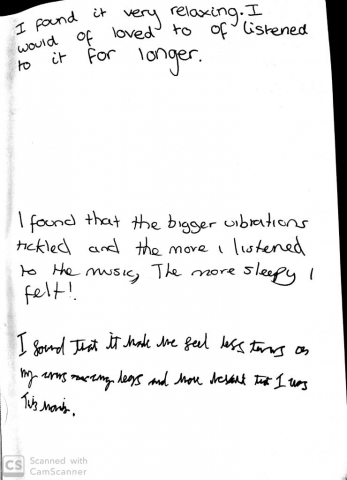 I found it very relaxing. I
would of loved to of listened
to it for longer.
I found that the bigger vibrations
tickled and the more i listened
to the music, The more sleepy I
felt!.
I found that it made me feel less tense on
my arms legs and more that I was
This
CS Scanned with
CamScanner